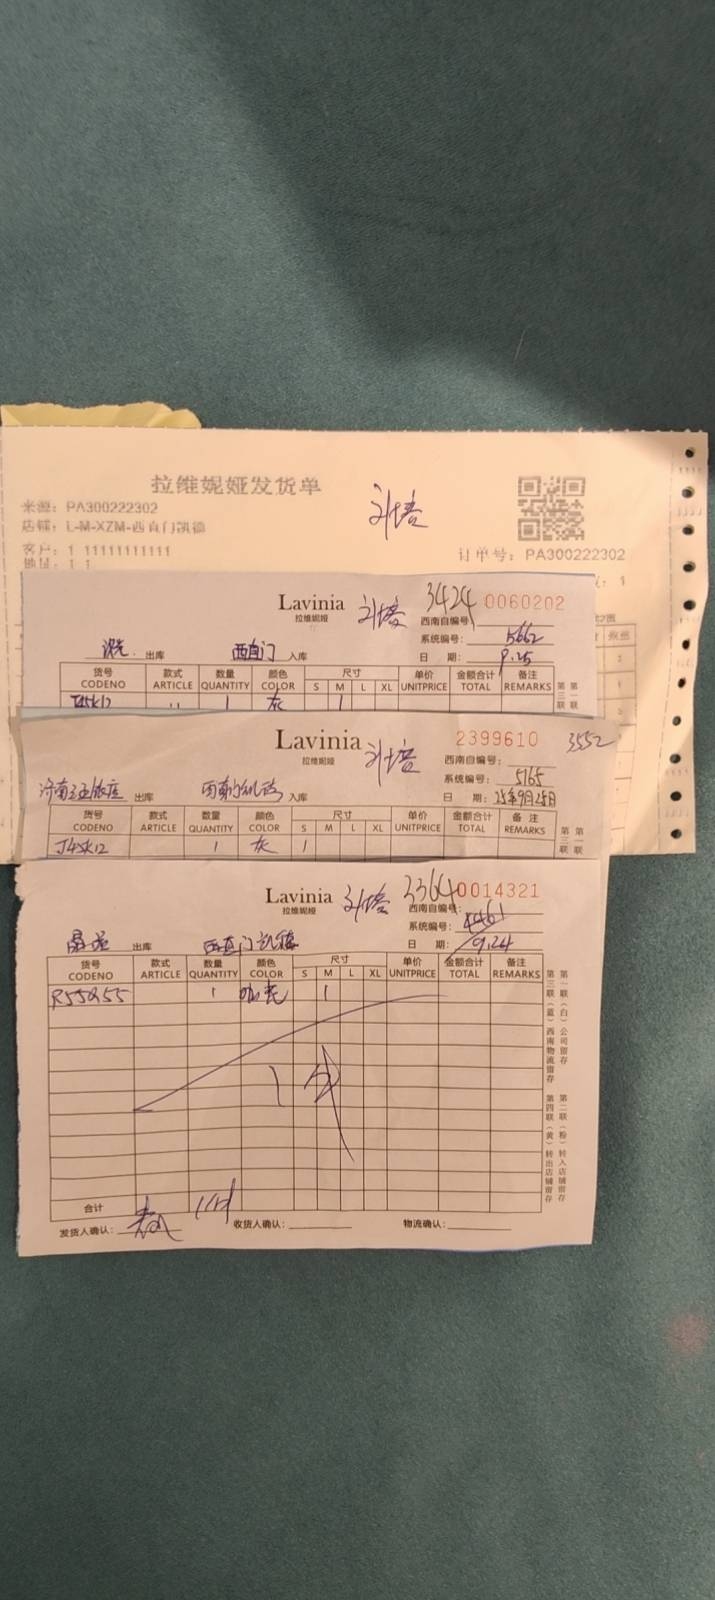 拉维妮娅发货单
来源：PA300222302
刘培
店铺：L-M-XZM-西直门凯德
客户：1 11111111111
订单号：PA300222302
地址：1 1
Lavinia
拉维妮娅
刘培
3424 0060202
西南自编号：
系统编号：5662
出库 西直门 入库
日 期：9.25
货号 款式 数量 颜色 尺寸 单价 金额合计 备注
CODENO ARTICLE QUANTITY COLOR S M L XL UNITPRICE TOTAL REMARKS
J45K12 1 灰 1
第三联 第一联
Lavinia
拉维妮娅
刘培
2399610 3552
西南自编号：
系统编号：5165
出库 入库
日 期：25年9月25日
货号 款式 数量 颜色 尺寸 单价 金额合计 备注
CODENO ARTICLE QUANTITY COLOR S M L XL UNITPRICE TOTAL REMARKS
J45K12 1 灰 1
第三联 第一联
Lavinia
拉维妮娅
刘培
3364 0014321
西南自编号：
系统编号：4461
出库 西直门凯德 入库
日 期：9.24
货号 款式 数量 颜色 尺寸 单价 金额合计 备注
CODENO ARTICLE QUANTITY COLOR S M L XL UNITPRICE TOTAL REMARKS
R55Q155 1 咖花 1
1件
合计 1件
发货人确认： 收货人确认： 物流确认：
第一联（白）公司留存
第二联（粉）转入店铺留存
第三联（蓝）西南物流留存
第四联（黄）转出店铺留存